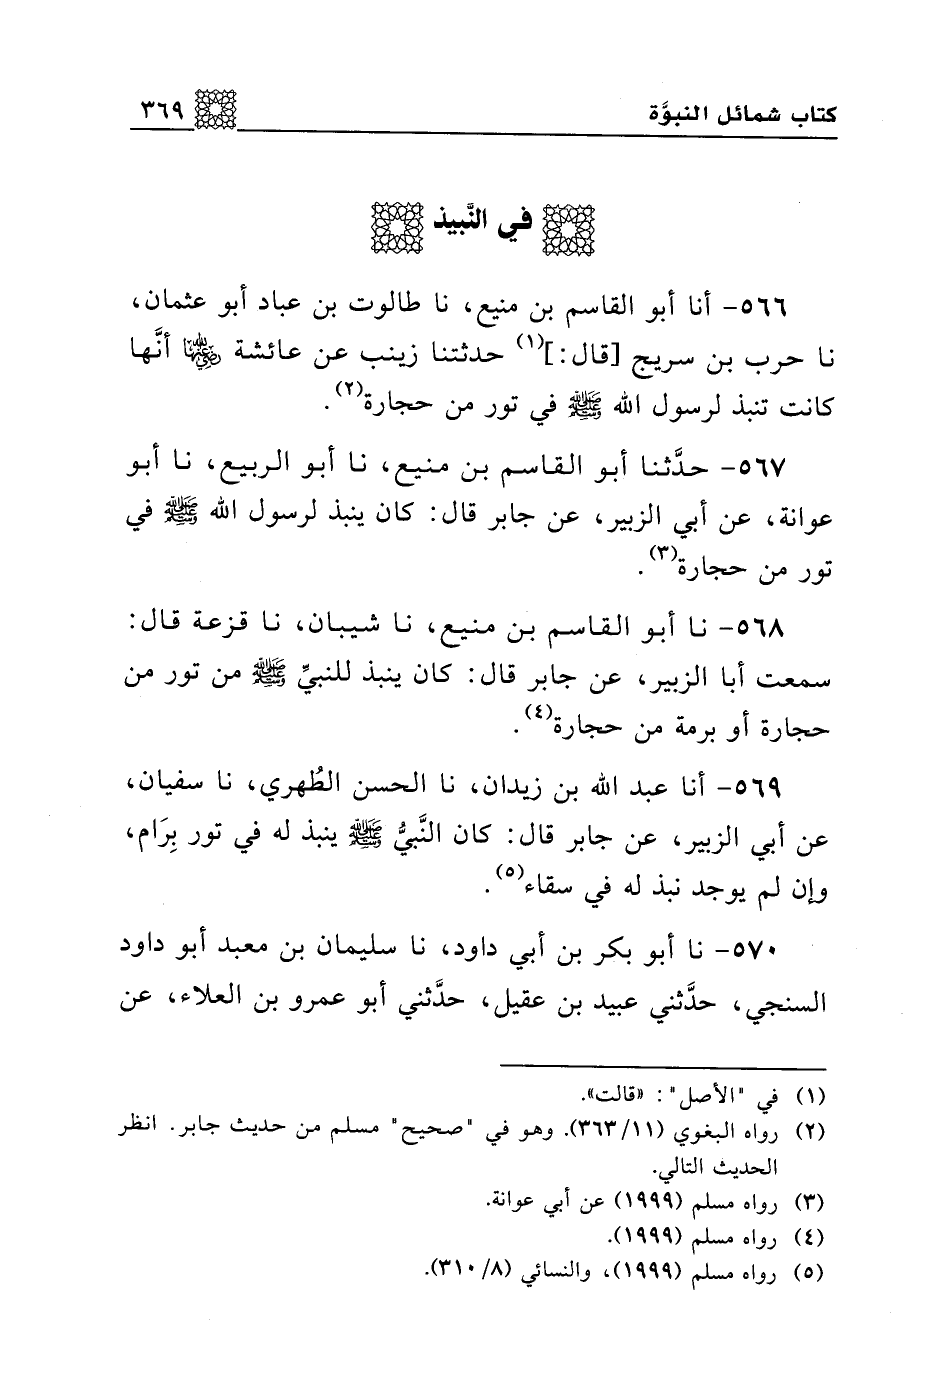 كتاب شمائل النبوَّة ٣٦٩
في النَّبيذ
٥٦٦- أنا أبو القاسم بن منيع، نا طالوت بن عباد أبو عثمان،
نا حرب بن سريج [قال:](١) حدثتنا زينب عن عائشة رضي الله عنها أنَّها
كانت تنبذ لرسول الله ﷺ في تور من حجارة(٢).
٥٦٧- حدَّثنا أبو القاسم بن منيع، نا أبو الربيع، نا أبو
عوانة، عن أبي الزبير، عن جابر قال: كان ينبذ لرسول الله ﷺ في
تور من حجارة(٣).
٥٦٨- نا أبو القاسم بن منيع، نا شيبان، نا قزعة قال:
سمعت أبا الزبير، عن جابر قال: كان ينبذ للنبيِّ ﷺ من تور من
حجارة أو برمة من حجارة(٤).
٥٦٩- أنا عبد الله بن زيدان، نا الحسن الطُهري، نا سفيان،
عن أبي الزبير، عن جابر قال: كان النَّبيُّ ﷺ ينبذ له في تور بِرَام،
وإن لم يوجد نبذ له في سقاء(٥).
٥٧٠- نا أبو بكر بن أبي داود، نا سليمان بن معبد أبو داود
السنجي، حدَّثني عبيد بن عقيل، حدَّثني أبو عمرو بن العلاء، عن
(١) في "الأصل": «قالت».
(٢) رواه البغوي (٣٦٣/١١). وهو في "صحيح" مسلم من حديث جابر. انظر
الحديث التالي.
(٣) رواه مسلم (١٩٩٩) عن أبي عوانة.
(٤) رواه مسلم (١٩٩٩).
(٥) رواه مسلم (١٩٩٩)، والنسائي (٣١٠/٨).